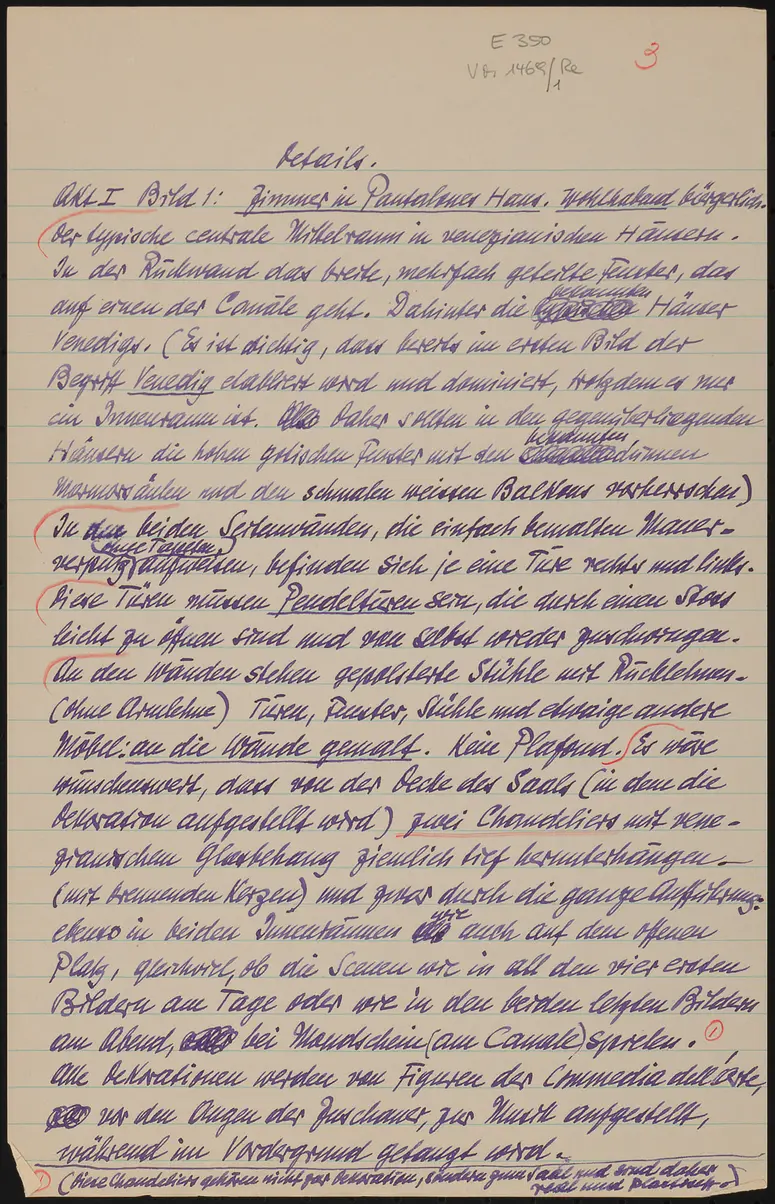 E 350
3
1469/Re
1
Details.
Akt I Bild 1: Zimmer in Pantalones Haus. Wohlhabend bürgerlich.
Der typische centrale Mittelraum in venezianischen Häusern.
In der Rückwand das breite, mehrfach geteilte Fenster, das
auf einen der Canäle geht. Dahinter die bekannten Häuser
Venedigs. (Es ist wichtig, dass bereits im ersten Bild der
Begriff Venedig etabliert wird und dominiert, trotzdem es nur
ein Innenraum ist. Daher sollten in den gegenüberliegenden
Häusern die hohen gotischen Fenster mit den bekannten dünnen
Marmorsäulen und den schmalen weissen Balkons vorherrschen)
In den beiden Seitenwänden, die einfach bemalten Mauer-
verputz (ohne Tapeten) aufweisen, befinden sich je eine Türe rechts und links.
Diese Türen müssen Pendeltüren sein, die durch einen Stoss
leicht zu öffnen sind und von selbst wieder zuschwingen.
An den Wänden stehen gepolsterte Stühle mit Rücklehnen.
(ohne Armlehne) Türen, Fenster, Stühle und etwaige andere
Möbel: an die Wände gemalt. Kein Plafond. Es wäre
wünschenswert, dass von der Decke des Saals (in dem die
Dekoration aufgestellt wird) zwei Chandeliers mit vene-
zianischem Glasbehang ziemlich tief herunterhängen.—
(mit brennenden Kerzen) und zwar durch die ganze Aufführung:
ebenso in beiden Innenräumen wie auch auf dem offenen
Platz, gleichviel, ob die Scenen wie in all den vier ersten
Bildern am Tage oder wie in den beiden letzten Bildern
am Abend, bei Mondschein (am Canale) spielen. 1)
Alle Dekorationen werden von Figuren der Commedia dell'arte,
vor den Augen der Zuschauer, zur Musik aufgestellt,
während im Vordergrund getanzt wird.
1) (Diese Chandeliers gehören nicht zur Dekoration, sondern zum Saal und sind daher
reell und plastisch.)